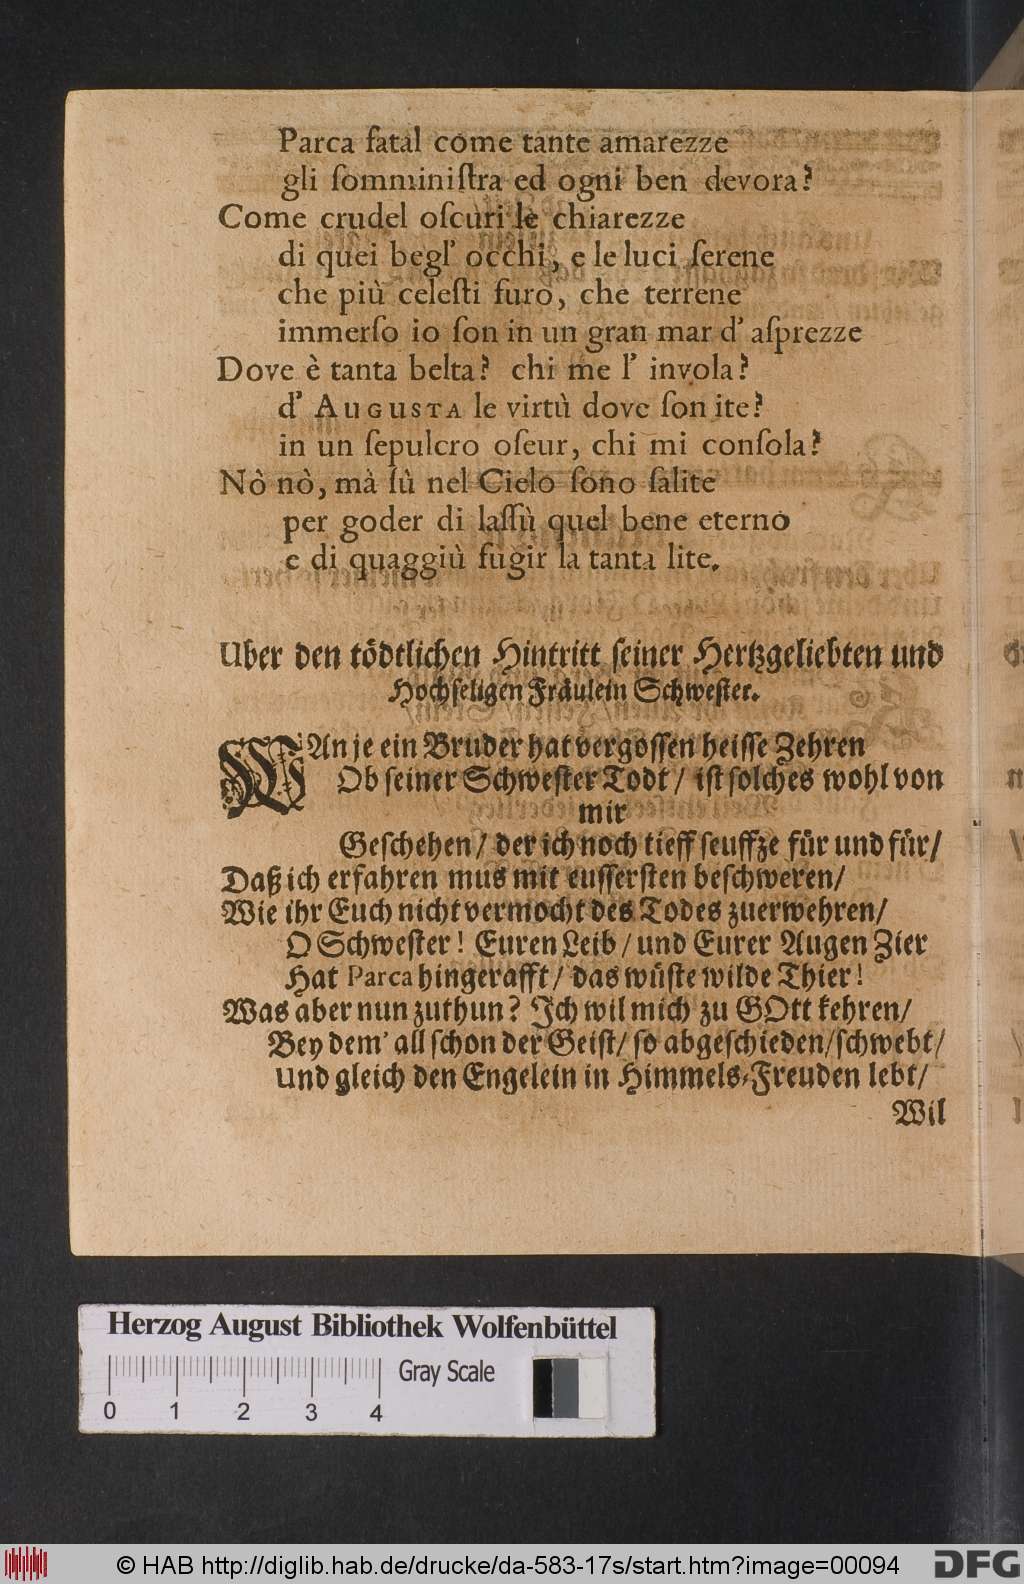 Parca fatal come tante amarezze
gli ſomminiſtra ed ogni ben devora?
Come crudel oſcuri le chiarezze
di quei begl' occhi, e le luci ſerene
che più celeſti furo, che terrene
immerſo io ſon in un gran mar d' aſprezze
Dove è tanta belta? chi me l' invola?
d' AUGUSTA le virtù dove ſon ite?
in un ſepulcro oſeur, chi mi conſola?
Nò nò, mà ſù nel Cielo ſono ſalite
per goder di laſſù quel bene eterno
e di quaggiù fugir la tanta lite.
Uber den tödtlichen Hintritt ſeiner Hertzgeliebten und
Hochſeligen Fräulein Schweſter.
WAn je ein Bruder hat vergoſſen heiſſe Zehren
Ob ſeiner Schweſter Todt / iſt ſolches wohl von
mir
Geſchehen / der ich noch tieff ſeuffze für und für /
Daß ich erfahren mus mit euſſerſten beſchweren /
Wie ihr Euch nicht vermocht des Todes zuerwehren /
O Schweſter! Euren Leib / und Eurer Augen Zier
Hat Parca hingerafft / das wüſte wilde Thier!
Was aber nun zuthun? Ich wil mich zu GOtt kehren /
Bey dem' all ſchon der Geiſt / ſo abgeſchieden / ſchwebt /
Und gleich den Engelein in Himmels-Freuden lebt /
Wil
Herzog August Bibliothek Wolfenbüttel
Gray Scale
0 1 2 3 4
© HAB http://diglib.hab.de/drucke/da-583-17s/start.htm?image=00094
DFG